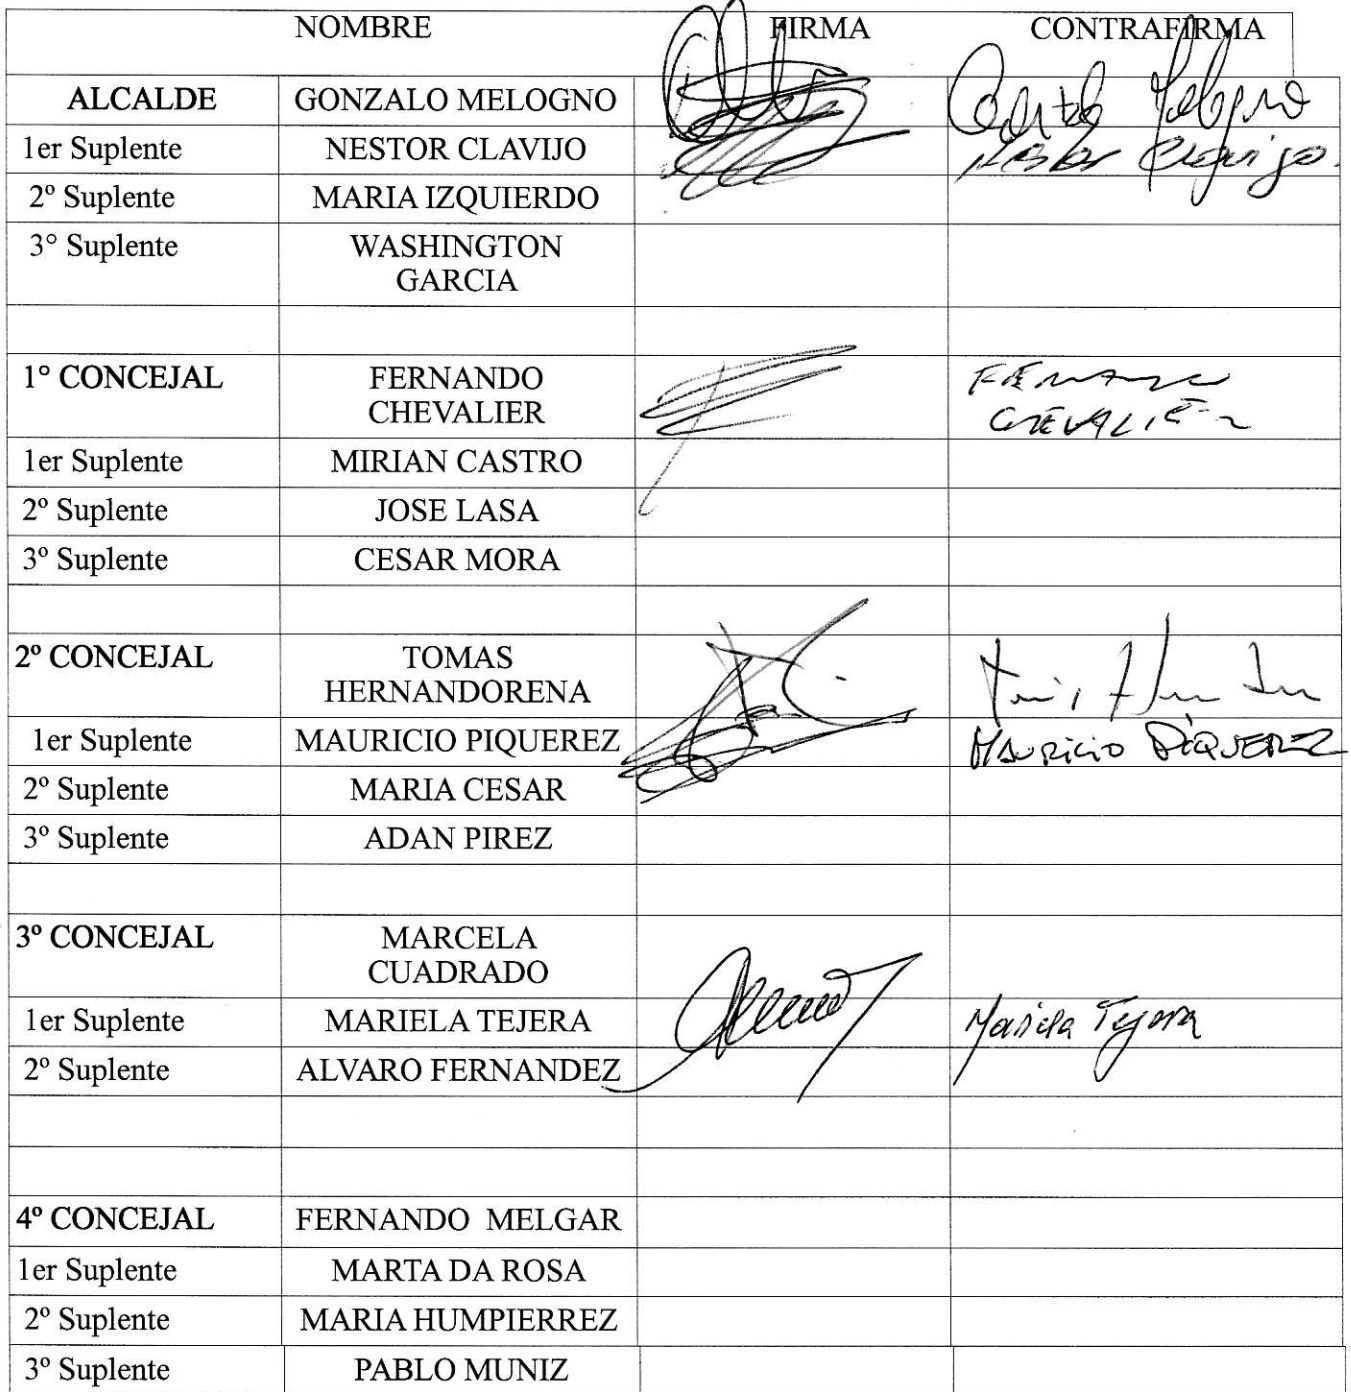 NOMBRE FIRMA CONTRAFIRMA
ALCALDE GONZALO MELOGNO Melogno
1er Suplente NESTOR CLAVIJO Nestor Clavijo
2º Suplente MARIA IZQUIERDO
3° Suplente WASHINGTON
GARCIA
1° CONCEJAL FERNANDO FERNANDO
CHEVALIER CHEVALIER
1er Suplente MIRIAN CASTRO
2º Suplente JOSE LASA
3º Suplente CESAR MORA
2º CONCEJAL TOMAS
HERNANDORENA
1er Suplente MAURICIO PIQUEREZ MAURICIO PIQUEREZ
2º Suplente MARIA CESAR
3º Suplente ADAN PIREZ
3º CONCEJAL MARCELA
CUADRADO
1er Suplente MARIELA TEJERA Mariela Tejera
2º Suplente ALVARO FERNANDEZ
4º CONCEJAL FERNANDO MELGAR
1er Suplente MARTA DA ROSA
2º Suplente MARIA HUMPIERREZ
3º Suplente PABLO MUNIZ